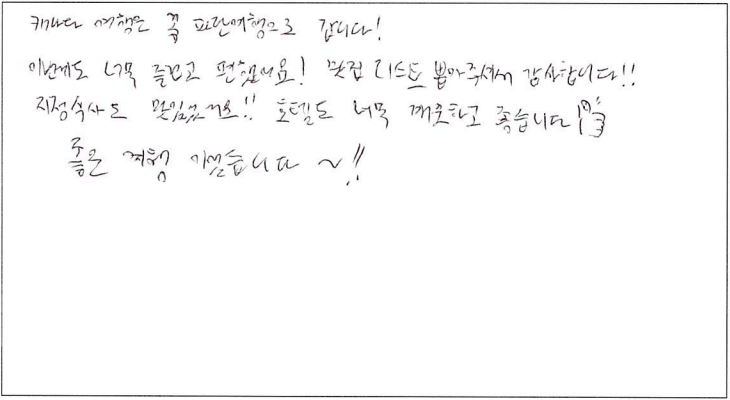 캐나다 여행은 꼭 파란여행으로 갑니다!
이번에도 너무 즐겁고 편했어요! 맛집 리스트 뽑아주셔서 감사합니다!!
지정식사도 맛있었어요!! 호텔도 너무 깨끗하고 좋습니다
좋은 여행 했습니다 ~!!